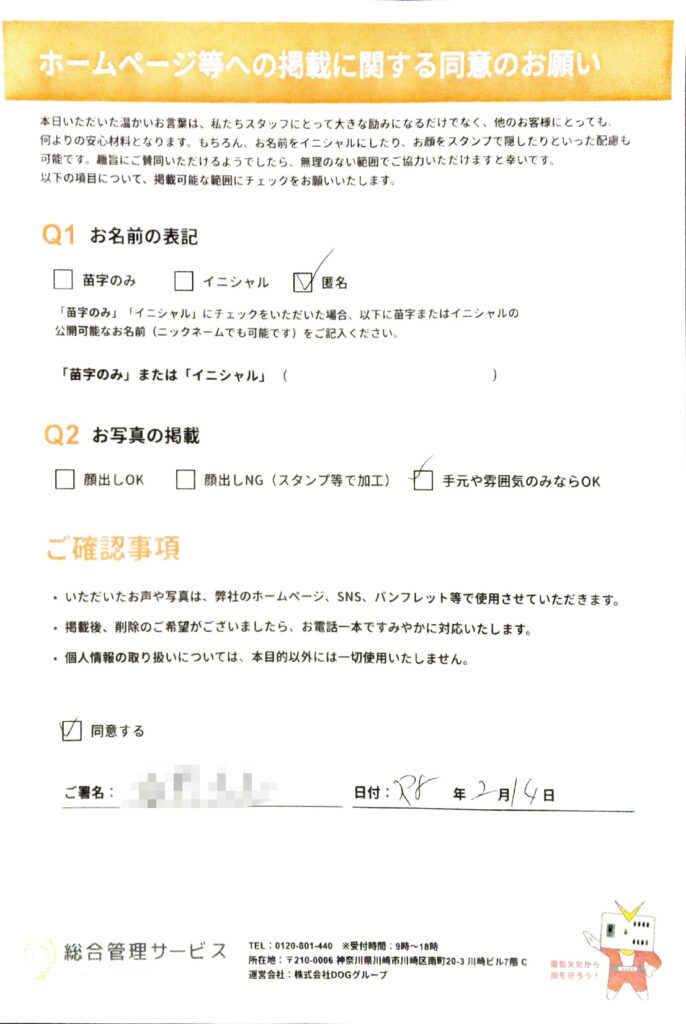 ホームページ等への掲載に関する同意のお願い
本日いただいた温かいお言葉は、私たちスタッフにとって大きな励みになるだけでなく、他のお客様にとっても、
何よりの安心材料となります。もちろん、お名前をイニシャルにしたり、お顔をスタンプで隠したりといった配慮も
可能です。趣旨にご賛同いただけるようでしたら、無理のない範囲でご協力いただけますと幸いです。
以下の項目について、掲載可能な範囲にチェックをお願いいたします。
Q1 お名前の表記
苗字のみ イニシャル 匿名
「苗字のみ」「イニシャル」にチェックをいただいた場合、以下に苗字またはイニシャルの
公開可能なお名前（ニックネームでも可能です）をご記入ください。
「苗字のみ」または「イニシャル」（ ）
Q2 お写真の掲載
顔出しOK 顔出しNG（スタンプ等で加工） 手元や雰囲気のみならOK
ご確認事項
・いただいたお声や写真は、弊社のホームページ、SNS、パンフレット等で使用させていただきます。
・掲載後、削除のご希望がございましたら、お電話一本ですみやかに対応いたします。
・個人情報の取り扱いについては、本目的以外には一切使用いたしません。
同意する
ご署名： 日付：R8 年 2月14日
総合管理サービス
TEL：0120-801-440 ※受付時間：9時〜18時
所在地：〒210-0006 神奈川県川崎市川崎区南町20-3 川崎ビル7階 C
運営会社：株式会社DOGグループ
電気火災から
街を守ろう！